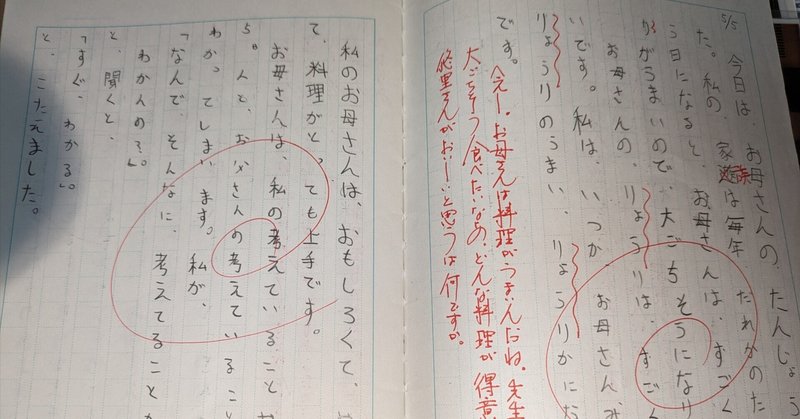 5/5 今日は、お母さんの、たんじょう
た。私の、家族は毎年、だれかのた
う日になると、お母さんは、すごく
りがうまいので、大ごちそうになり
お母さんの、りょうりは、すご
いです。私は、いつか、お母さんみ
りょうりのうまい、りょうりかにな
です。
へえー。お母さんは料理がうまいんだね。先生
大ごちそう食べたいなあ。どんな料理が得意
さんがおいしいと思うは何ですか。
私のお母さんは、おもしろくて、
て、料理がとっても上手です。
お母さんは、私の考えていること
人と、お父さんの考えていること
わかってしまいます。私が、
「なんで、そんなに、考えてることか
わかんの？。」
と、聞くと、
「すぐ、わかる。」
と、こたえました。